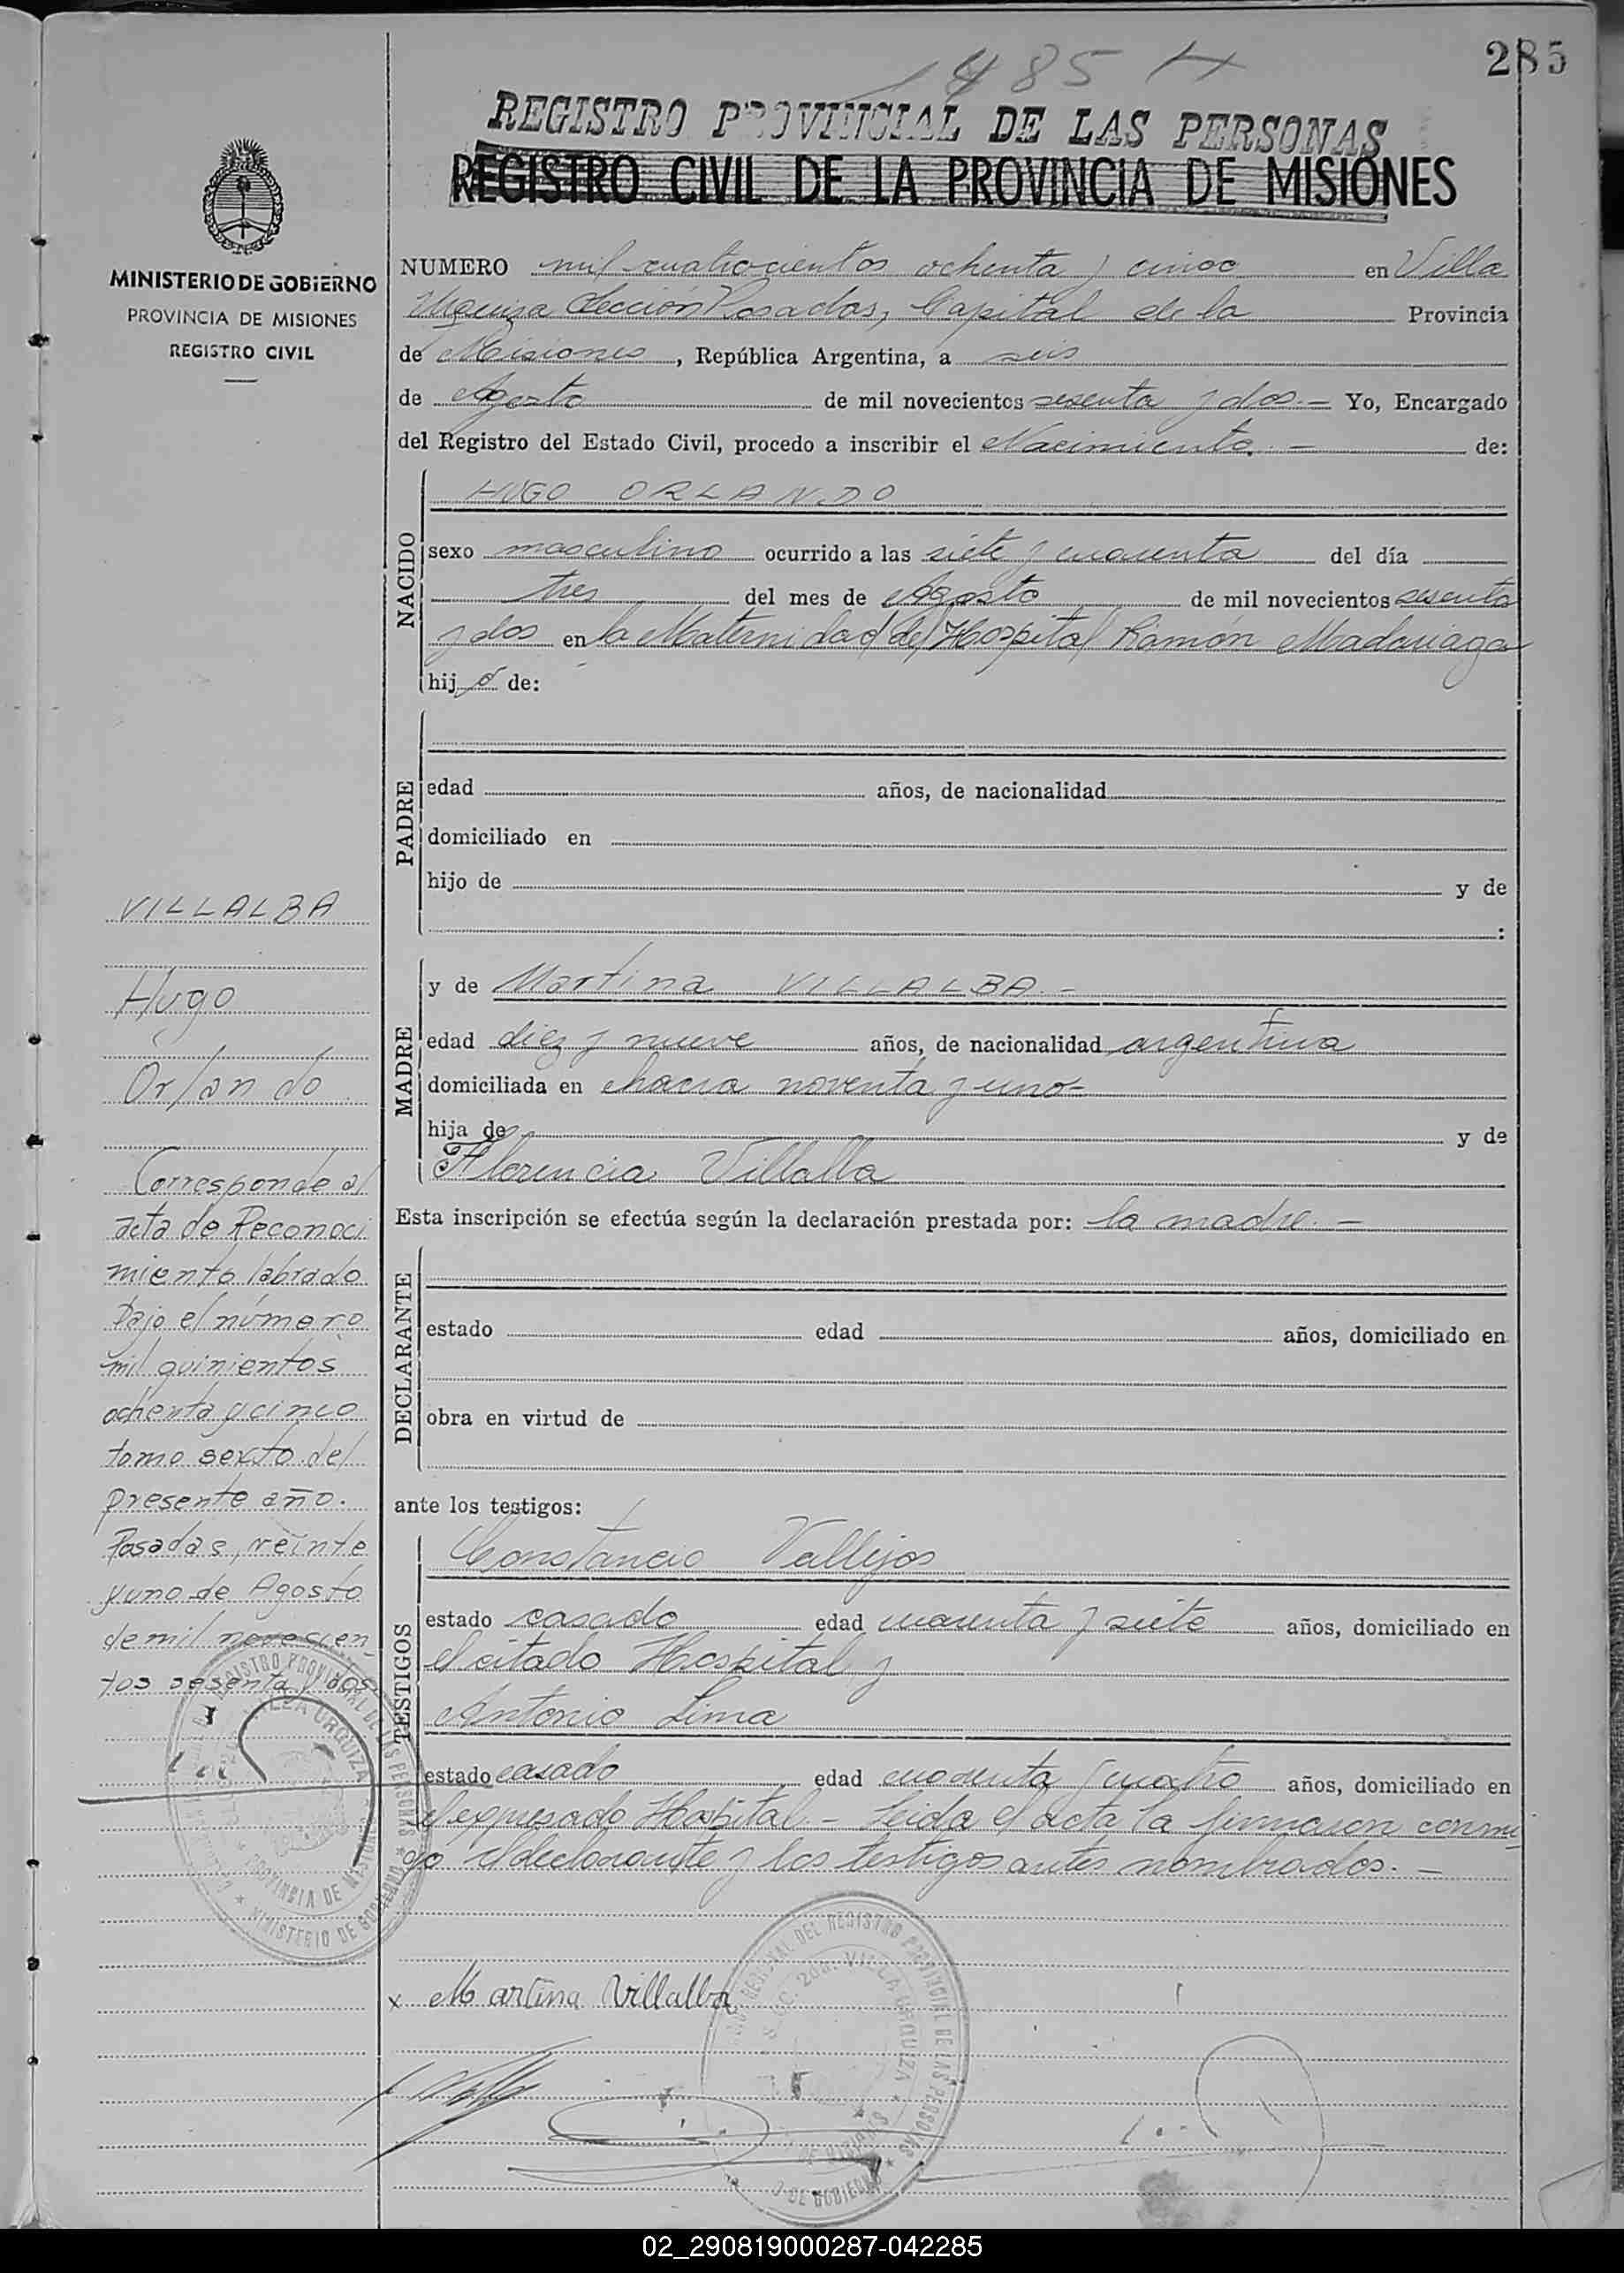 285
1485
REGISTRO PROVINCIAL DE LAS PERSONAS
REGISTRO CIVIL DE LA PROVINCIA DE MISIONES
MINISTERIO DE GOBIERNO
PROVINCIA DE MISIONES
REGISTRO CIVIL
NUMERO mil cuatrocientos ochenta y cinco en Villa
Urquiza Sección Posadas, Capital de la Provincia
de Misiones, República Argentina, a seis
de Agosto de mil novecientos sesenta y dos.- Yo, Encargado
del Registro del Estado Civil, procedo a inscribir el Nacimiento.- de:
NACIDO
HUGO ORLANDO
sexo masculino ocurrido a las siete y cuarenta del día
tres del mes de Agosto de mil novecientos sesenta
y dos en la Maternidad del Hospital Ramón Madariaga
hijo de:
PADRE
edad años, de nacionalidad
domiciliado en
hijo de y de
:
MADRE
y de Martina VILLALBA.-
edad diez y nueve años, de nacionalidad argentina
domiciliada en chacra noventa y uno-
hija de y de
Florencia Villalba
Esta inscripción se efectúa según la declaración prestada por: la madre.-
DECLARANTE
estado edad años, domiciliado en
obra en virtud de
ante los testigos:
TESTIGOS
Constancio Vallejos
estado casado edad cuarenta y siete años, domiciliado en
el citado Hospital y
Antonio Lima
estado casado edad cuarenta y cuatro años, domiciliado en
el expresado Hospital.- Leida el acta la firmaron conmi
go el declarante y los testigos antes nombrados.-
x Martina Villalba
VILLALBA
Hugo
Orlando
Corresponde al
acta de Reconoci
miento labrado
bajo el número
mil quinientos
ochenta y cinco
tomo sexto del
presente año.
Posadas, veinte
y uno de Agosto
de mil novecien
tos sesenta y dos
REGISTRO PROVINCIAL DE LAS PERSONAS
VILLA URQUIZA
PROVINCIA DE MISIONES
MINISTERIO DE GOBIERNO
DEL REGISTRO PROVINCIAL DE LAS PERSONAS
VILLA URQUIZA
02_290819000287-042285